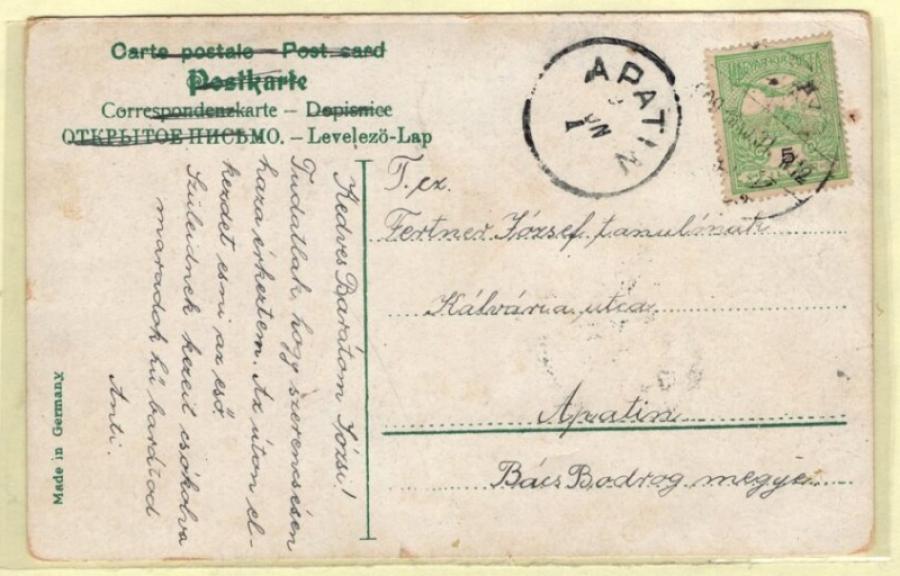 Carte postale – Post card
Postkarte
Correspondenzkarte – Dopisnice
ОТКРЫТОЕ ПИСЬМО. – Levelező-Lap
Kedves Barátom Józsi!
Tudatlak hogy szerencsésen
haza érkeztem. Az úton el-
kezdet esni az eső
Szüleidnek kezeit csókolva
maradok hű barátod
Anti.
T. cz.
Fertner József tanulónak
Kálvária utca
Apatin
Bács Bodrog megye
APATIN
JUN
MAGYAR
5
Made in Germany